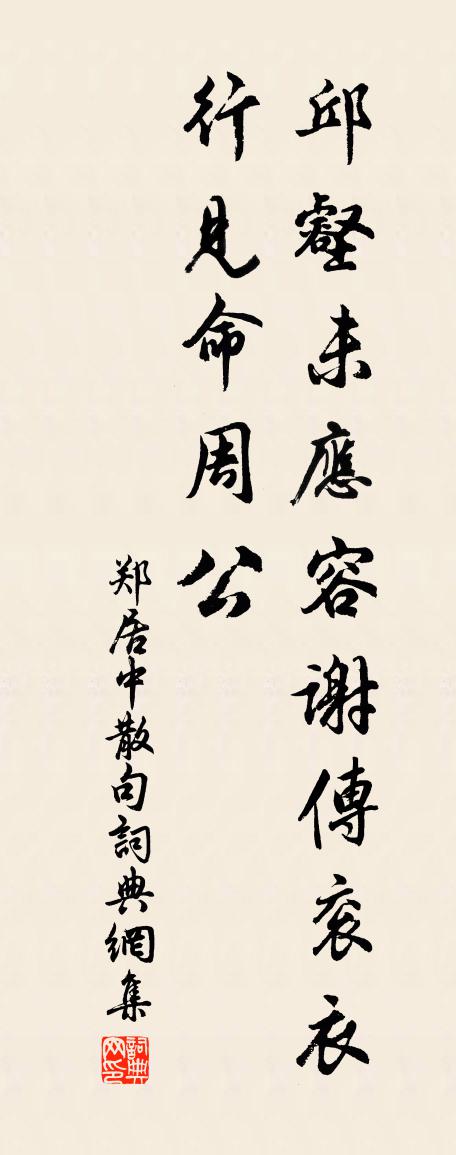 邱壑未應容謝傅衮衣
行見命周公
郑居中散句詞典網集
詞典网印